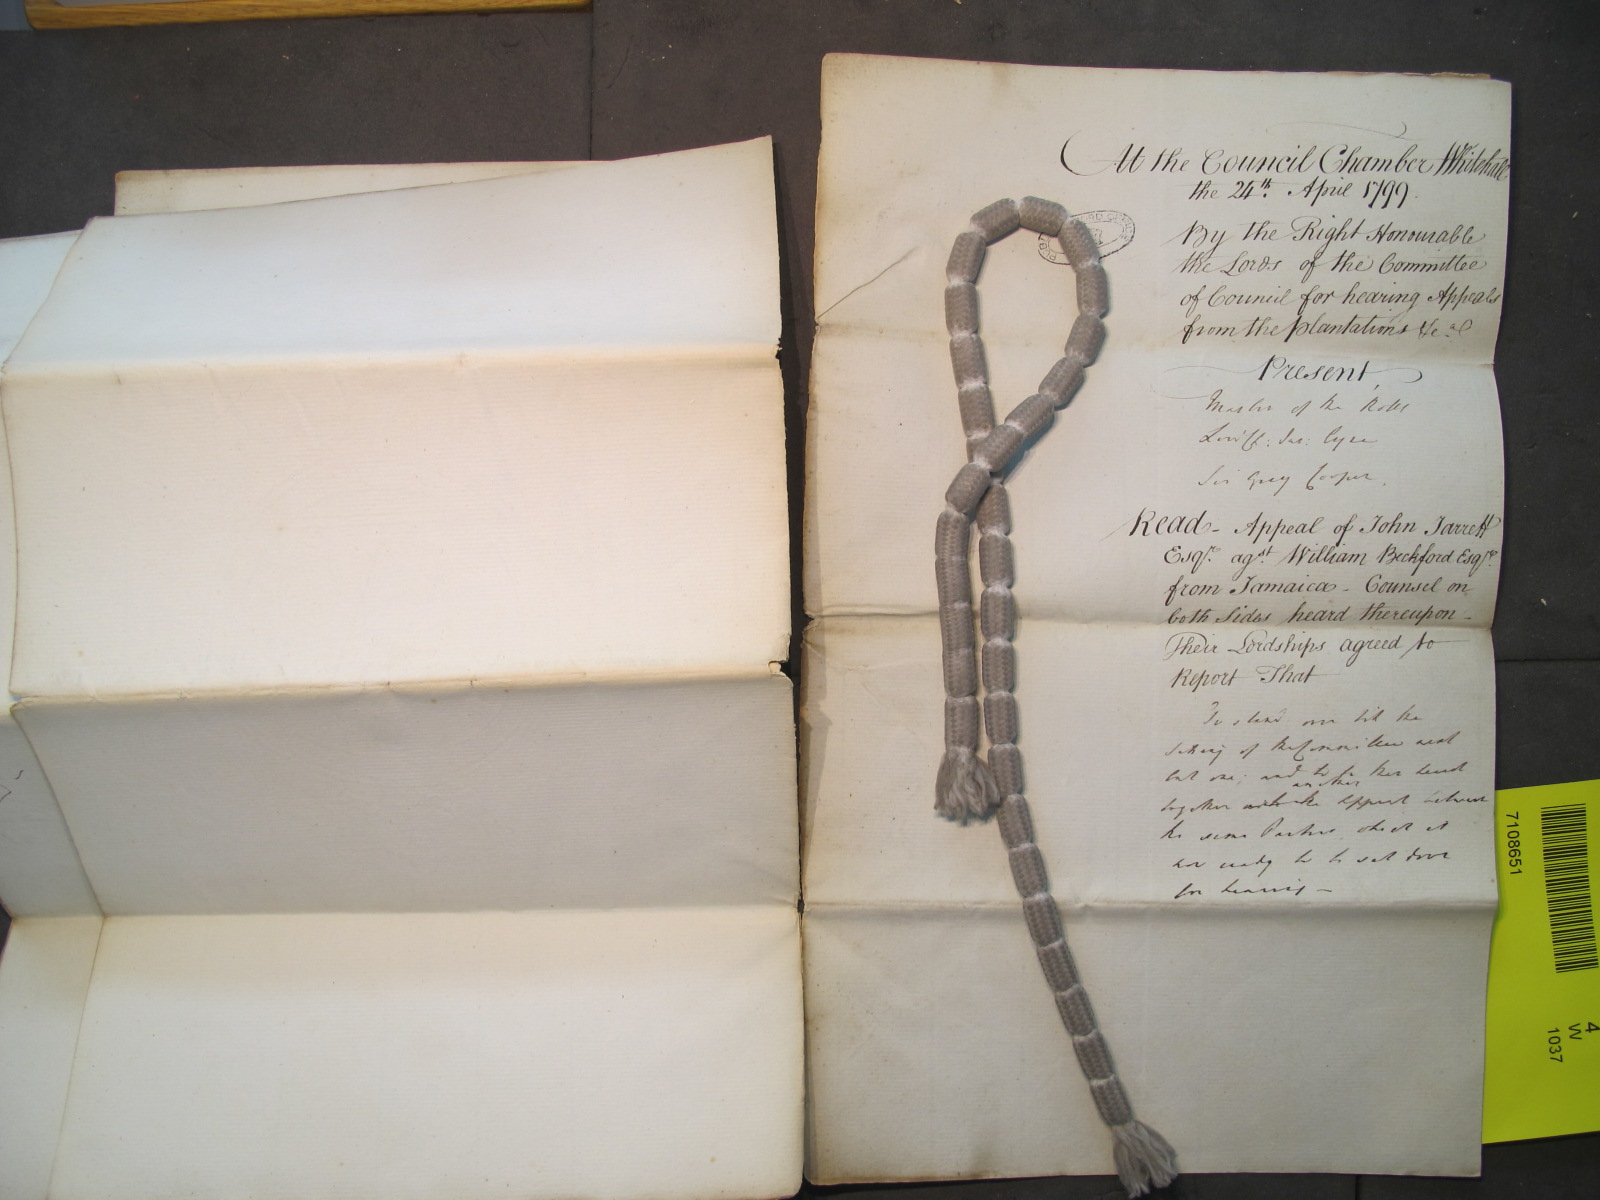 At the Council Chamber Whitehall
the 24th. April 1799.
By the Right Honourable
the Lords of the Committee
of Council for hearing Appeals
from the plantations &c.
Present,
Master of the Rolls
Eyre
Sir Grey Cooper.
Read - Appeal of John Jarrett
Esqre. agst William Beckford Esqre.
from Jamaica - Counsel on
both Sides heard thereupon -
Their Lordships agreed to
Report That
To stand over till the
sitting of the Committee next
but one; and to be then heard
another
together with the Appeal between
the same Parties, which is
now ready to be set down
for hearing -
7108651
4
W
1037